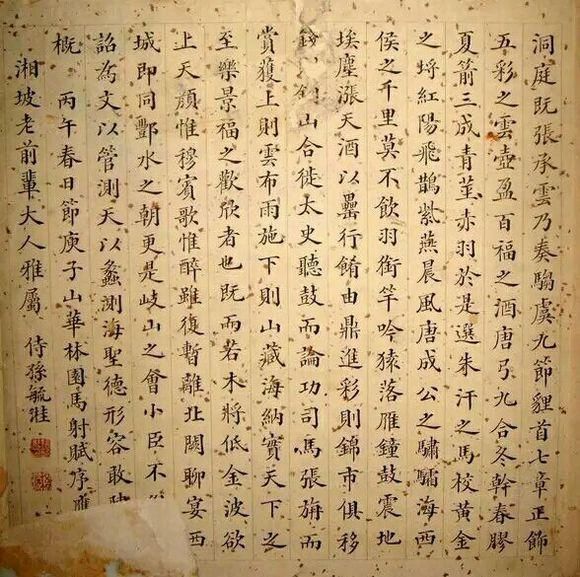 洞庭既張承雲乃奏騶虞九節貍首七章正飾
五彩之雲壺盈百福之酒唐弓九合冬幹春膠
夏箭三成青莖赤羽於是選朱汗之馬校黃金
之埒紅陽飛鵲紫燕晨風唐成公之驌驦海西
侯之千里莫不飲羽銜竿吟猿落雁鐘鼓震地
埃塵漲天酒以罍行餚由鼎進彩則錦市俱移
錢山合徙太史聽鼓而論功司馬張旃而
賞獲上則雲布雨施下則山藏海納實天下之
至樂景福之歡欣者也既而若木將低金波欲
上天顏惟穆賓歌惟醉雖復暫離北闕聊宴西
城即同酆水之朝更是岐山之會小臣不
詔為文以管測天以蠡測海聖德形容敢
概 丙午春日節庚子山華林園馬射賦序應
湘坡老前輩大人雅屬 侍孫毓溎